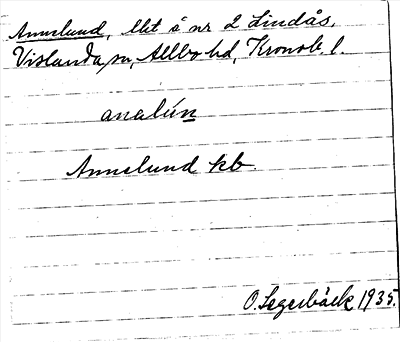 Annelund, lht å nr 2 Lindås.
Vislanda sn, Allbo hd, Kronob. l.
analún
Annelund kb.
O. Segerbäck 1935.